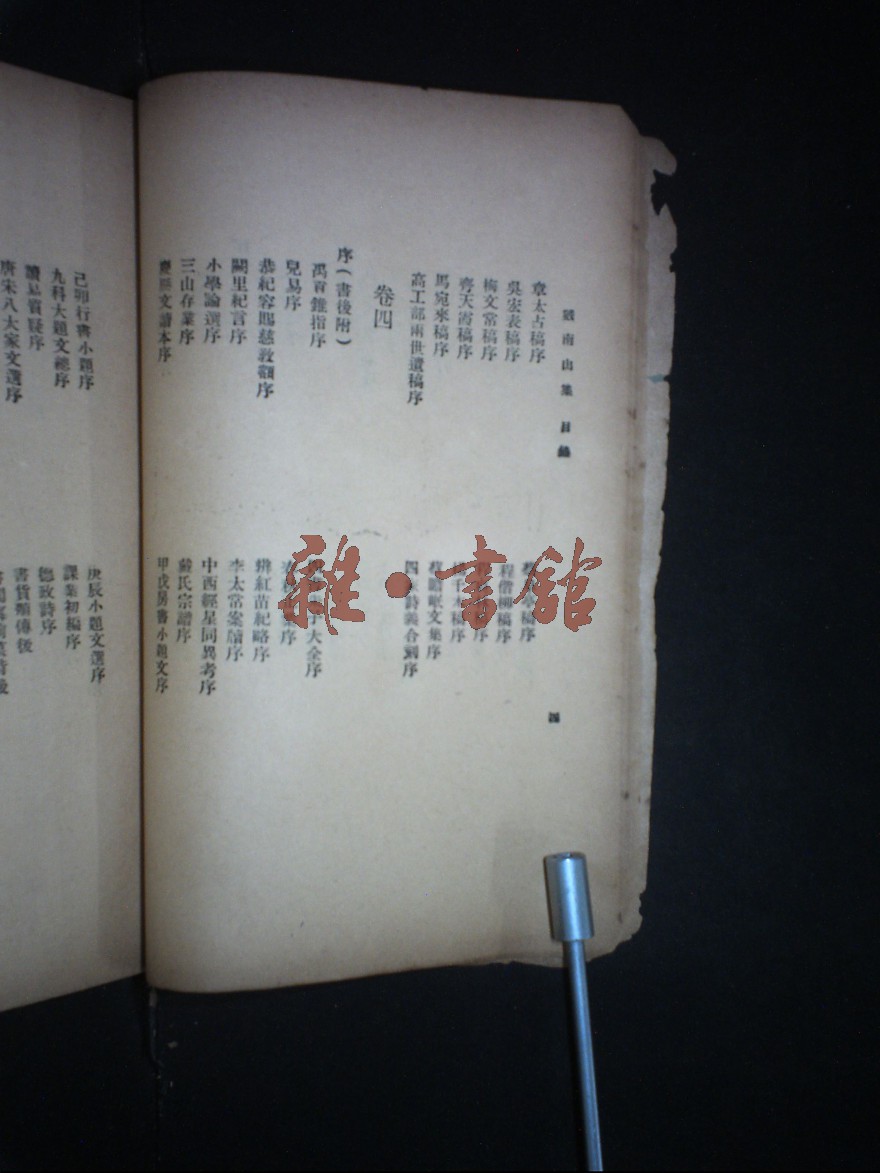 戴南山集 目錄
四
章太占稿序
稿序
吳宏表稿序
程偕 稿序
梅文常稿序
序
齊天霱稿序
稿序
馬宛來稿序
蔡瞻岷文集序
高工部兩世遺稿序
四家詩義合刻序
卷四
序(書後附)
禹貢錐指序
大全序
兒易序
業序
恭紀睿賜慈教額序
辨紅苗紀略序
闕里紀言序
李太常案牘序
小學論選序
中西經星同異考序
三山存業序
戴氏宗譜序
慶曆文讀本序
甲戌房書小題文序
己卯行書小題序
庚辰小題文選序
九科大題文總序
課業初編序
讀易質疑序
德政詩序
唐宋八大家文選序
書貨殖傳後
雜·書館